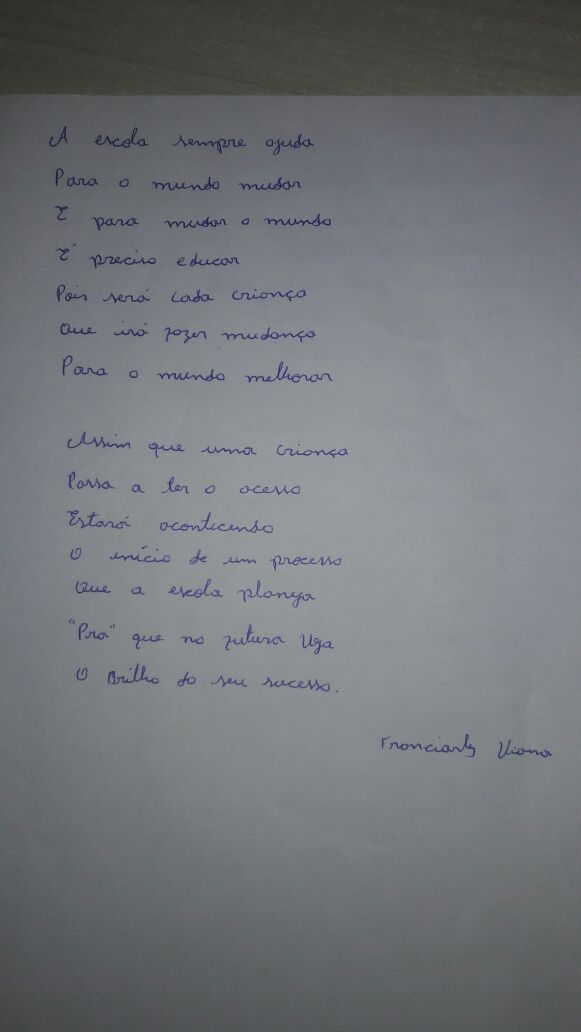 A escola sempre ajuda
Para o mundo mudar
E para mudar o mundo
É preciso educar
Pois será cada criança
Que irá fazer mudança
Para o mundo melhorar
Assim que uma criança
Passa a ter o acesso
Estará acontecendo
O início de um processo
Que a escola planeja
"Pra" que no futuro veja
O Brilho do seu sucesso.
Franciarly Viana